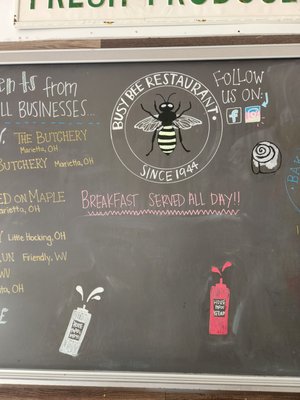 FRESH PRODUCE
ents from
LL BUSINESSES...
THE BUTCHERY
Marietta, OH
BUTCHERY Marietta, OH
ED ON MAPLE
arietta, OH
Y Little Hocking, OH
UN Friendly, WV
WV
ta, OH
BUSY BEE RESTAURANT
SINCE 1944
FOLLOW
US ON:
BREAKFAST SERVED ALL DAY!!